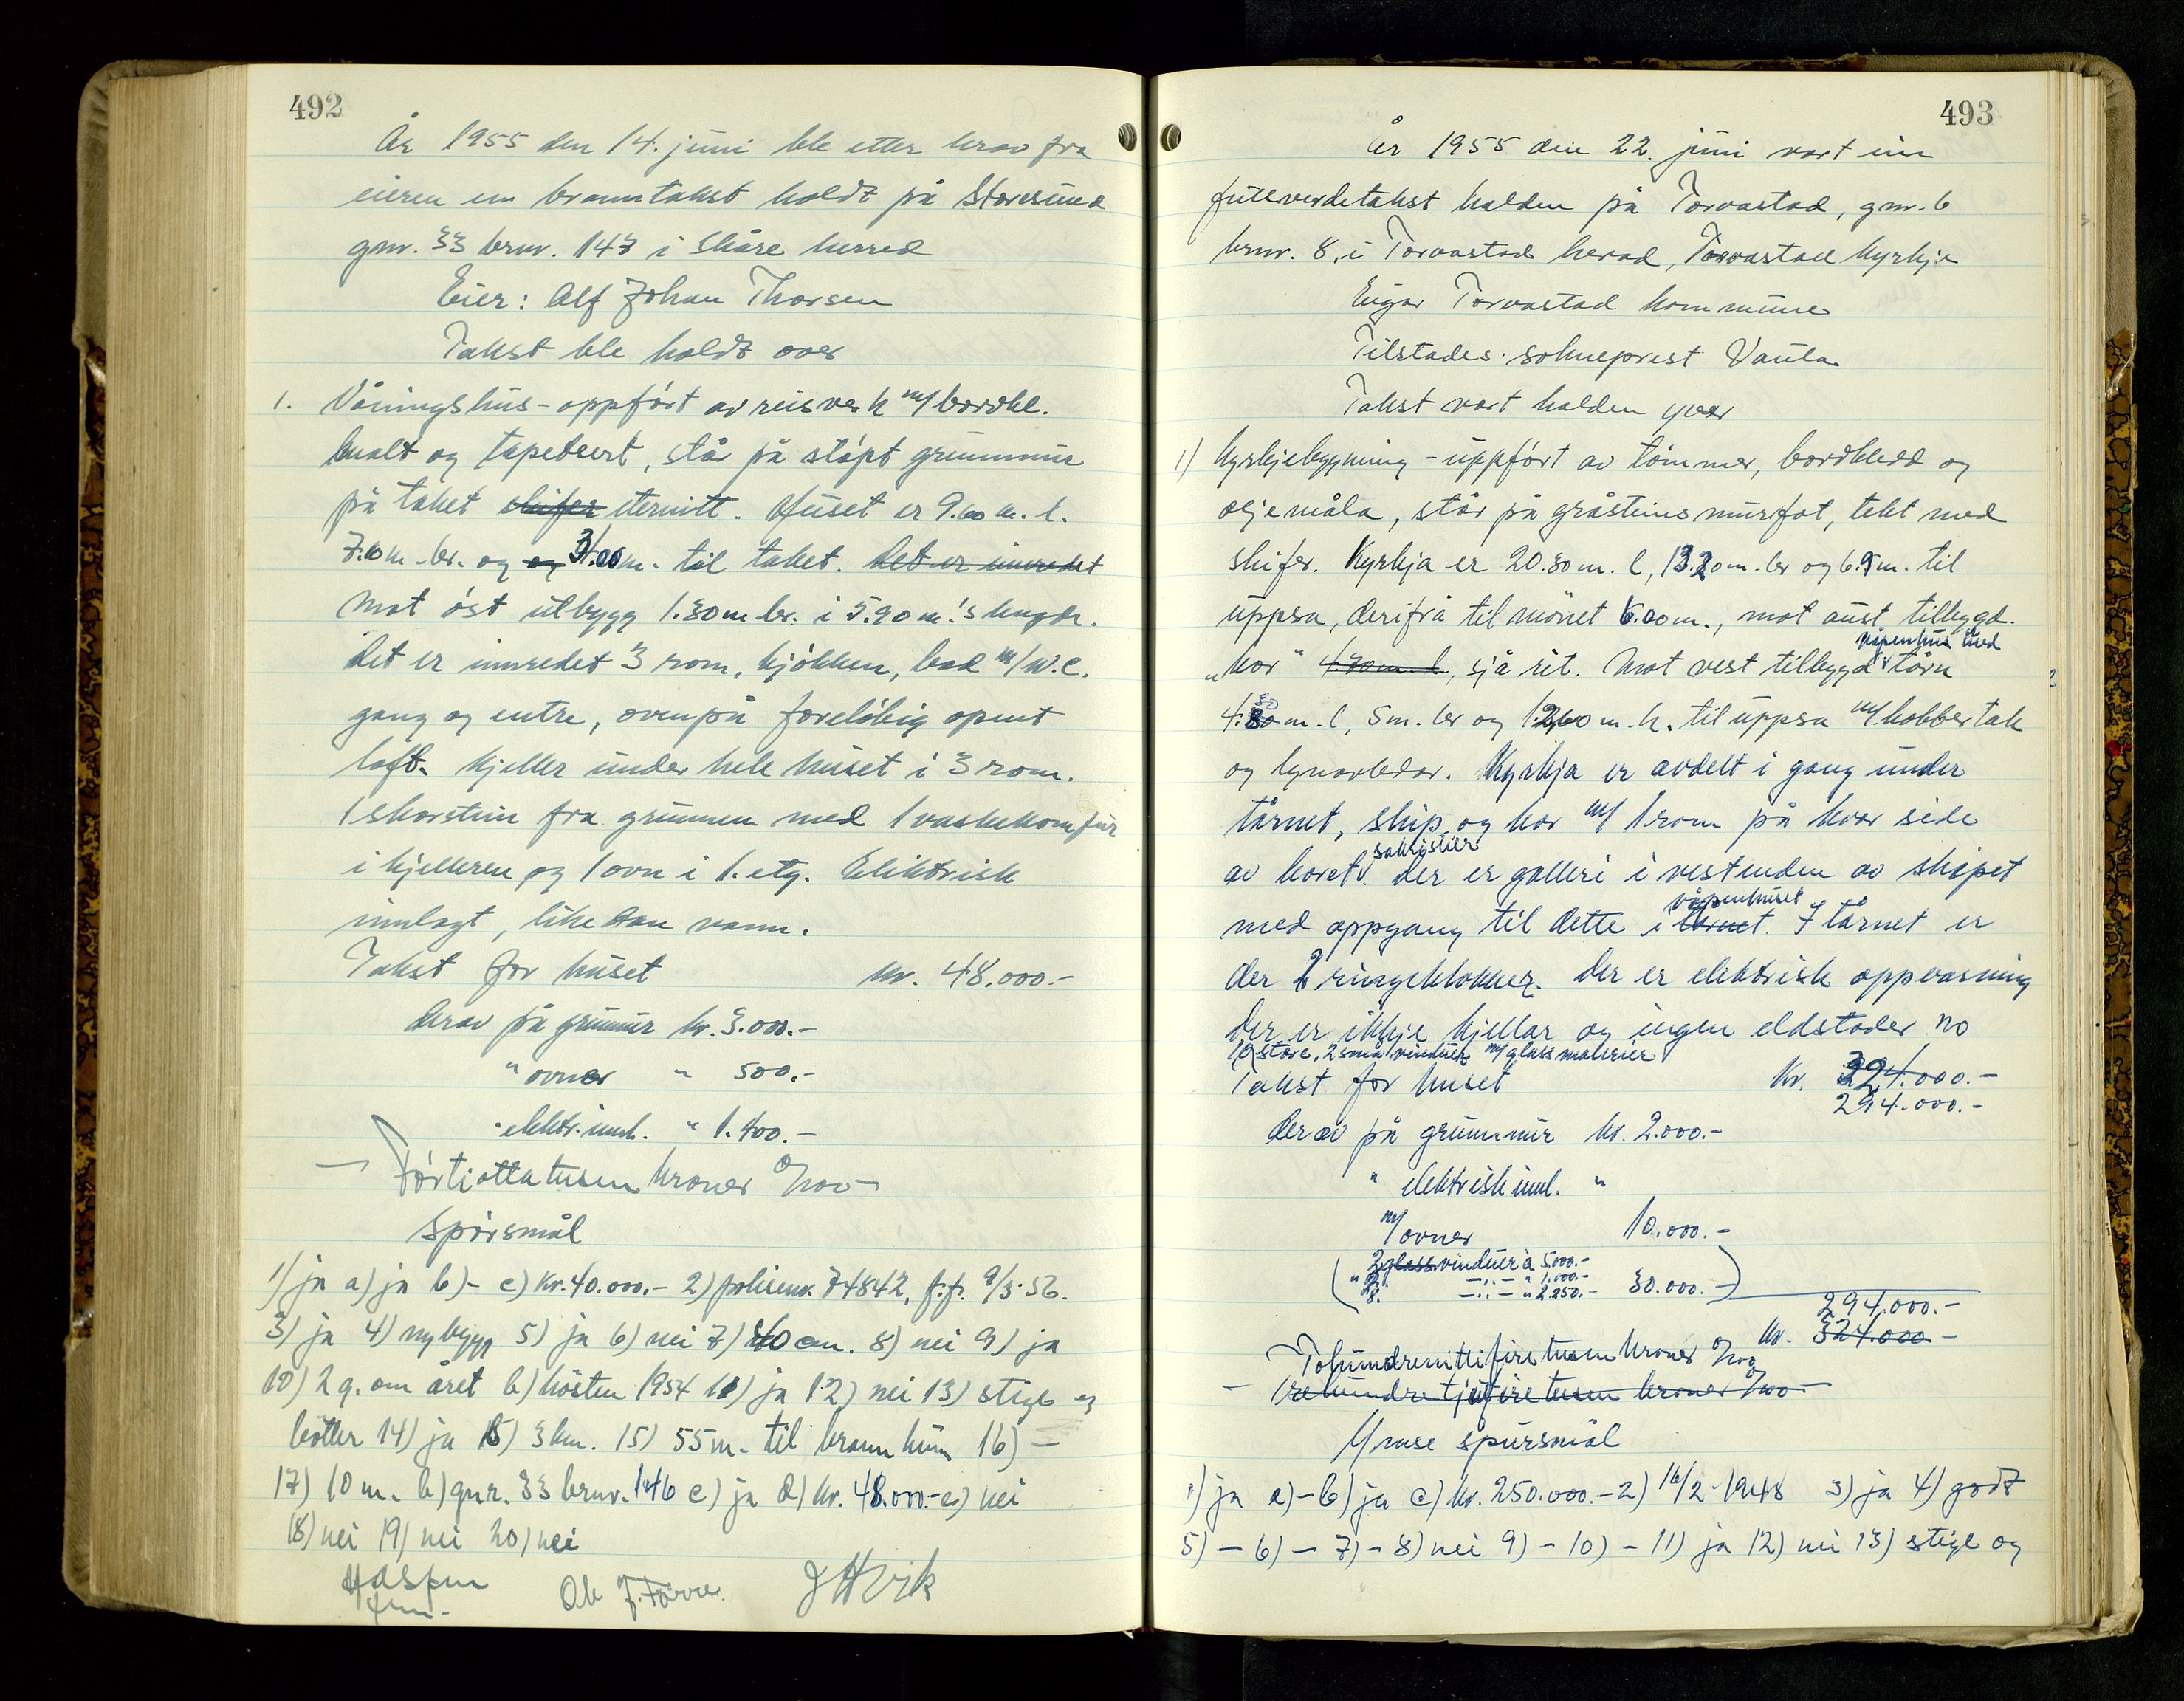 492
År 1955 den 14. juni ble etter krav fra
eieren en branntakst holdt på Storesund
gnr. 33 brnr. 147 i Skåre herred
Eier: Alf Johan Thorsen
Takst ble holdt over
1. Våningshus - oppført av reisverk m/ bordkl.
malt og tapetsert, står på støpt grunnmur
på taket skifer eternitt. Huset er 9.60 m. l.
7.10 m. br. og og 3.00 m. til taket. Det er innredet
Mot øst utbygg 1.30 m br. i 5.90 m's lengde.
Det er innredet 3 rom, kjøkken, bad m/ W.C.
gang og entre, ovenpå foreløbig åpent
loft. Kjeller under hele huset i 3 rom.
1 skorstein fra grunnen med 1 vaskekomfur
i kjelleren og 1 ovn i 1. etg. Elektrisk
innlagt, likedan vann.
Takst for huset kr. 48.000.-
Derav på grunmur kr. 3.000.-
" ovner " 500.-
" elektr. innl. " 1.400.-
— Førtiottetusen kroner 0/100 —
Spørsmål
1) ja a) ja b) - c) kr. 40.000.- 2) polisenr. 74842, f.f. 9/3-56.
3) ja 4) nybygg 5) ja 6) nei 7) 40 cm. 8) nei 9) ja
10) 2 g. om året b) høsten 1954 11) ja 12) nei 13) stige og
bøtter 14) ja b) 3 km. 15) 55 m. til brannkum 16) —
17) 10 m. b) gnr. 33 brnr. 146 c) ja d) kr. 48.000.- e) nei
18) nei 19) nei 20) nei
H Aspen
Ole J. Førre.
J H Vik
493
År 1955 den 22. juni vart ein
fullverdetakst halden på Torvastad, gnr. 6
brnr. 8, i Torvastad herad, Torvastad kyrkje
Eigar Torvastad kommune
Tilstades: sokneprest Vaula
Takst vart halden yver
1) Kyrkjebygning - uppført av tømmer, bordkledd og
oljemåla, står på gråsteins murfot, tekt med
skifer. Kyrkja er 20.30 m. l, 13.20 m. br og 6.9 m. til
uppsa, derifrå til mønet 6.00 m., mot aust tilbygd.
våpenhus med
"kor" 4.30 m l, sjå rit. Mot vest tilbygd tårn
4.30 m. l, 5 m. br og 12.60 m. h. til uppsa m/ kobbertak
og lynavledar. Kyrkja er avdelt i gang under
tårnet, skip og kor m/ 1 rom på kvar side
sakristier
av koret. Der er galleri i vestenden av skipet
våpenhuset
med oppgang til dette i tårnet. I tårnet er
der 2 ringeklokker. Der er elektrisk oppvarming
Der er ikkje kjellar og ingen eldstader no
10 store, 2 små vinduer m/ glassmalerier
Takst for huset kr. 324.000.-
294.000.-
Derav på grunnmur kr. 2.000.-
" elektrisk innl. "
m/ ovner 10.000.-
( 2 glassvinduer à 5.000.-
" 2. —"— " 1.000.-
8. —"— " 2.250.- 30.000.- )
294.000.-
kr. 324.000 -
Tohundrenittifiretusen kroner 0/100
— Trehundretjuefiretusen kroner 0/100 —
Ymse spursmål
1) ja a) - b) ja c) kr. 250.000.- 2) 16/2-1948 3) ja 4) godt
5) - 6) - 7) - 8) nei 9) - 10) - 11) ja 12) nei 13) stige og